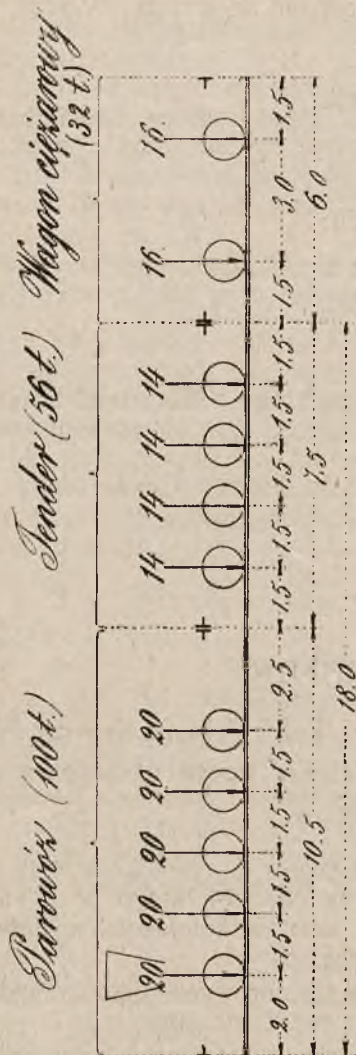 Parowóz (100 t.) Tender (56 t.) Wagon ciężarowy (32 t.)
20 20 20 20 20 14 14 14 14 16. 16.
2.0 1.5 1.5 1.5 1.5 2.5 1.5 1.5 1.5 1.5 1.5 1.5 3.0 1.5
10.5 7.5 6.0
18.0